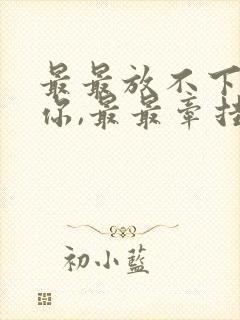 最最放不下
你,最最牵挂
初小藍